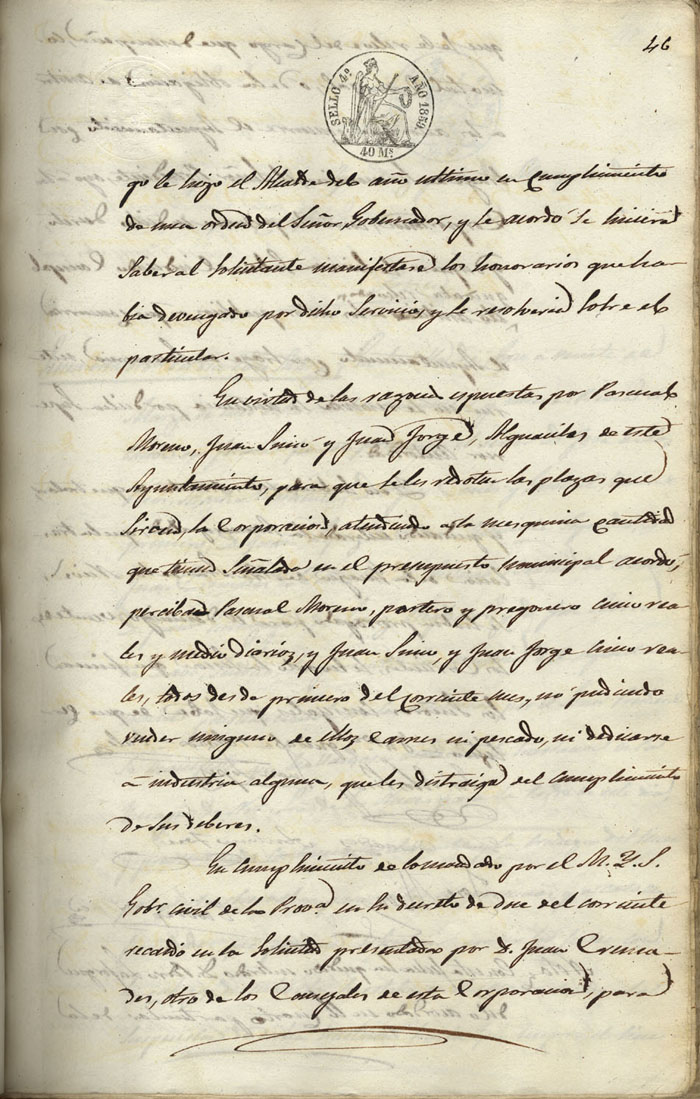 46
SELLO 4º AÑO 1859
40 Mˢ
go le hizo el Alcalde del año ultimo en cumplimiento
de una orden del Señor Gobernador, y se acordó se hiciera
saber al solicitante manifestara los honorarios que ha-
bia devengado por dicho servicio, y se resolveria sobre el
particular.
En virtud de las razones espuestas por Pascual
Moreno, Juan Sirio y Juan Jorge, Alguaciles de este
Ayuntamiento, para que se les las plazas que
sirven, la Corporacion, atendiendo a la mesquina cantidad
que tienen señalada en el presupuesto municipal acordó,
perciban Pascual Moreno, portero y pregonero cinco rea-
les y medio diarios, y Juan Sirio, y Juan Jorge cinco rea-
les, todos desde primero del corriente mes, no pudiendo
vender ninguno de ellos carnes ni pescado, ni dedicarse
a industria alguna, que les distraiga del cumplimiento
de sus deberes.
En cumplimiento de lo mandado por el M. Y. S.
Gobʳ civil de la Provª en su decreto de doce del corriente
recaido en la solicitud presentada por D. Juan Cremа-
des, otro de los Concejales de esta Corporacion, para